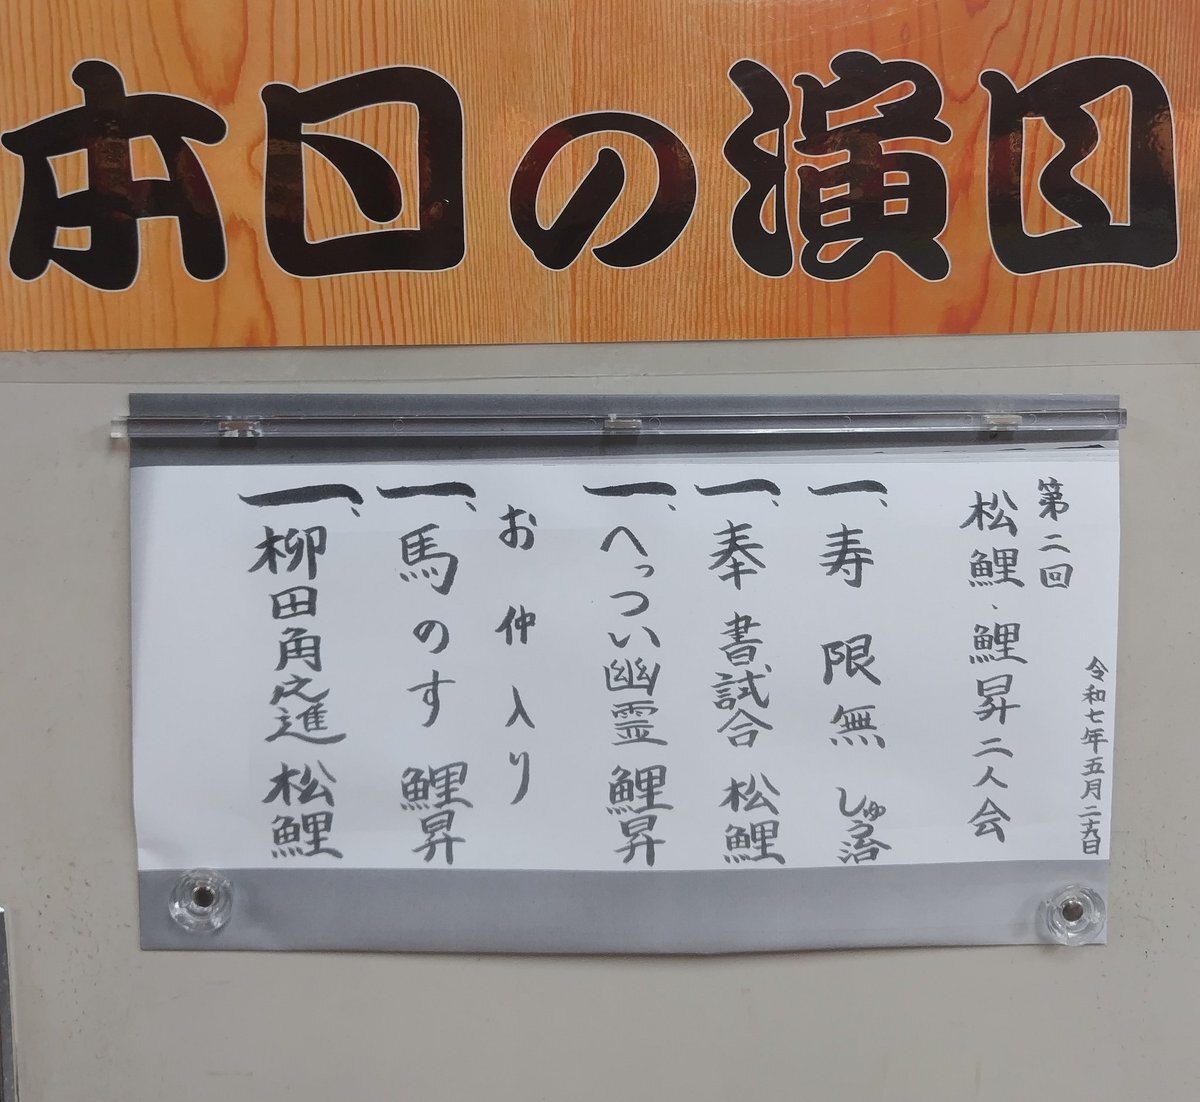 本日の演目
令和七年五月二十六日
第二回
松鯉・鯉昇二人会
一、寿限無 しゅう治
一、奉書試合 松鯉
一、へっつい幽霊 鯉昇
お仲入り
一、馬のす 鯉昇
一、柳田角之進 松鯉